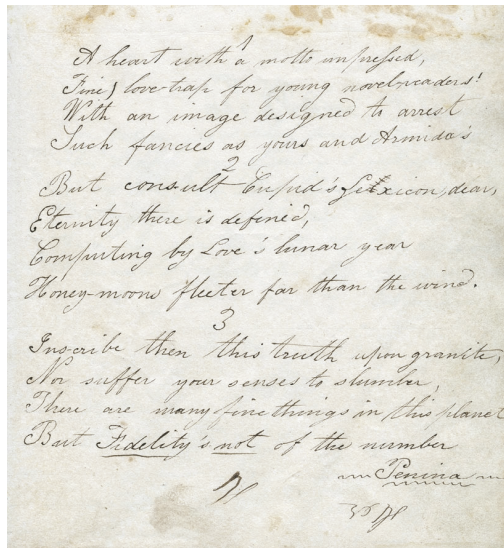 1
A heart with a motto impressed,
Fine love-trap for young novel-readers!
With an image designed to arrest
Such fancies as yours and Armida's
2
But consult Cupid's Lexicon, dear,
Eternity there is defined,
Computing by Love's lunar year
Honey-moons fleeter far than the wind.
3
Inscribe then this truth upon granite,
Nor suffer your senses to slumber,
There are many fine things in this planet
But Fidelity's not of the number
Penina